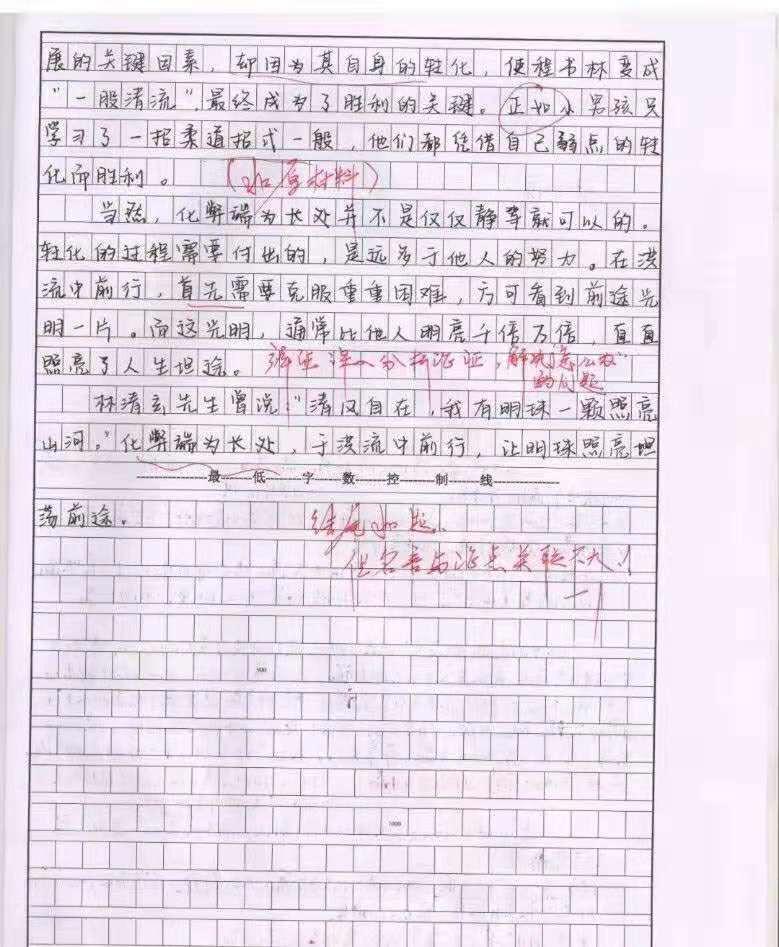 展的关键因素，却因为其自身的转化，使程书林变成
“一股清流”，最终成为了胜利的关键。正如小男孩只
学习了一招柔道招式一般，他们都凭借自己弱点的转
化而胜利。
(扣原材料)
当然，化弊端为长处并不是仅仅静等就可以的。
转化的过程需要付出的，是远多于他人的努力。在洪
流中前行，首先需要克服重重困难，方可看到前途光
明一片。而这光明，通常比他人明亮千倍万倍，直直
照亮了人生坦途。
深入分析论证，解决“怎么办”
的问题
林清玄先生曾说：“清风自在，我有明珠一颗照亮
山河。”化弊端为长处，于洪流中前行，让明珠照亮坦
最低字数控制线
荡前途。
结尾扣题，
但名言与论点关联不大！
900
1000